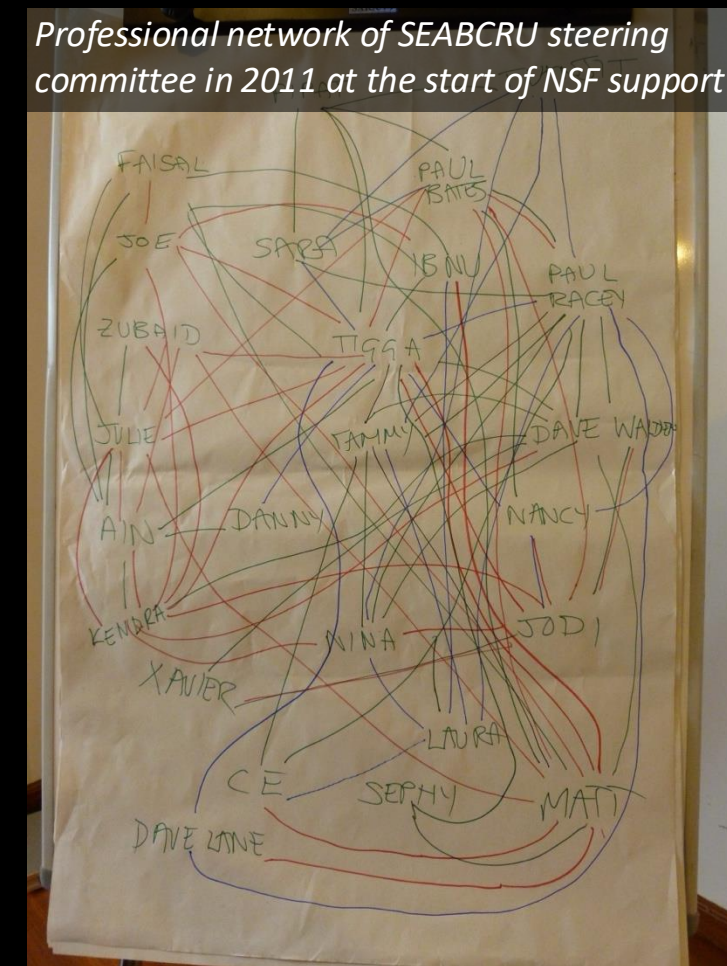 Professional network of SEABCRU steering
committee in 2011 at the start of NSF support
FAISAL
PAUL
BATES
JOE
SARA
IBNU
PAUL
RACEY
ZUBAID
TIGGA
JULIE
TAMMY
DAVE WALDIEN
AIN
DANNY
NANCY
KENDRA
NINA
JODI
XAVIER
LAURA
CE
SEPHY
MATT
DAVE LANE